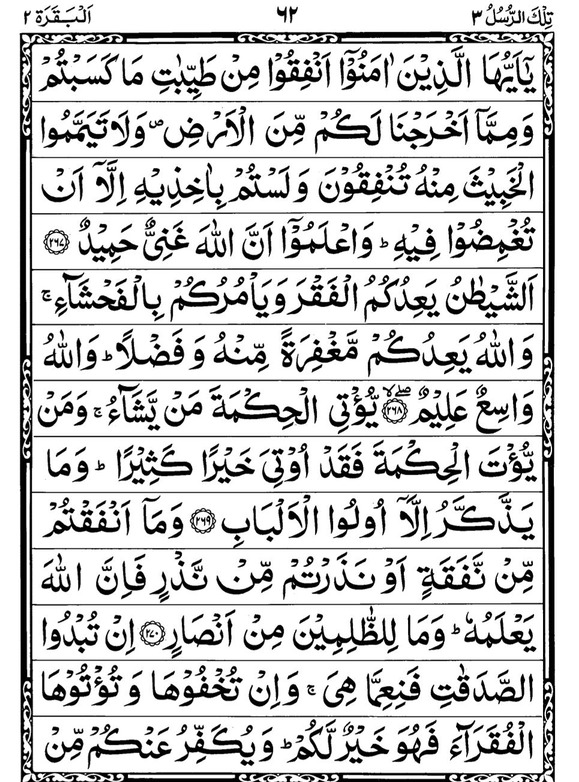 تِلْكَ الرُّسُلُ ٣ ٦٢ اَلْبَقَرَة ٢
يٰۤاَيُّهَا الَّذِيْنَ اٰمَنُوْۤا اَنْفِقُوْا مِنْ طَيِّبٰتِ مَا كَسَبْتُمْ
وَمِمَّاۤ اَخْرَجْنَا لَكُمْ مِّنَ الْاَرْضِ ۪ وَلَا تَيَمَّمُوا
الْخَبِيْثَ مِنْهُ تُنْفِقُوْنَ وَلَسْتُمْ بِاٰخِذِيْهِ اِلَّاۤ اَنْ
تُغْمِضُوْا فِيْهِ ؕ وَاعْلَمُوْۤا اَنَّ اللّٰهَ غَنِيٌّ حَمِيْدٌ ﴿٢٦٧﴾
اَلشَّيْطٰنُ يَعِدُكُمُ الْفَقْرَ وَيَاْمُرُكُمْ بِالْفَحْشَآءِ ۚ
وَاللّٰهُ يَعِدُكُمْ مَّغْفِرَةً مِّنْهُ وَفَضْلًا ؕ وَاللّٰهُ
وَاسِعٌ عَلِيْمٌ ﴿٢٦٨﴾ ۖۙ يُّؤْتِي الْحِكْمَةَ مَنْ يَّشَآءُ ۚ وَمَنْ
يُّؤْتَ الْحِكْمَةَ فَقَدْ اُوْتِيَ خَيْرًا كَثِيْرًا ؕ وَمَا
يَذَّكَّرُ اِلَّاۤ اُولُوا الْاَلْبَابِ ﴿٢٦٩﴾ وَمَاۤ اَنْفَقْتُمْ
مِّنْ نَّفَقَةٍ اَوْ نَذَرْتُمْ مِّنْ نَّذْرٍ فَاِنَّ اللّٰهَ
يَعْلَمُهٗ ؕ وَمَا لِلظّٰلِمِيْنَ مِنْ اَنْصَارٍ ﴿٢٧٠﴾ اِنْ تُبْدُوا
الصَّدَقٰتِ فَنِعِمَّا هِيَ ۚ وَاِنْ تُخْفُوْهَا وَتُؤْتُوْهَا
الْفُقَرَآءَ فَهُوَ خَيْرٌ لَّكُمْ ؕ وَيُكَفِّرُ عَنْكُمْ مِّنْ